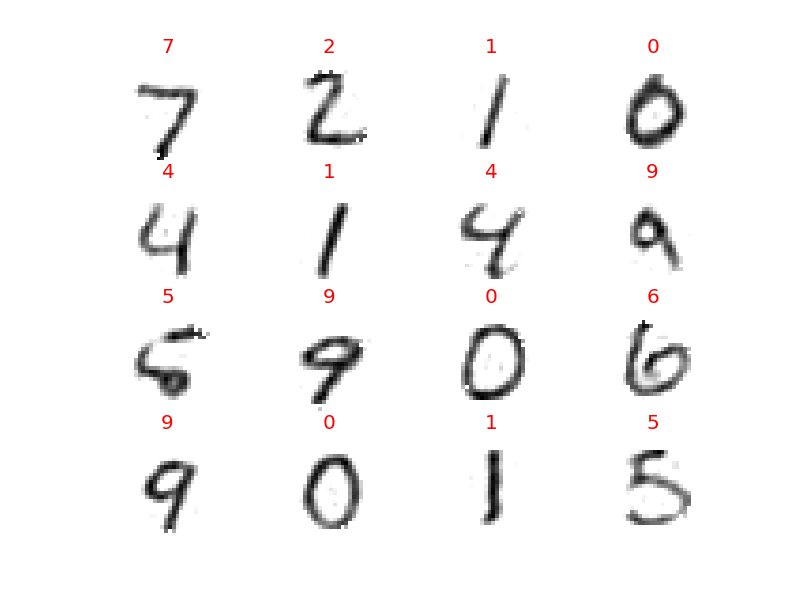 7 2 1 0
7 2 1 0
4 1 4 9
4 1 4 9
5 9 0 6
5 9 0 6
9 0 1 5
9 0 1 5